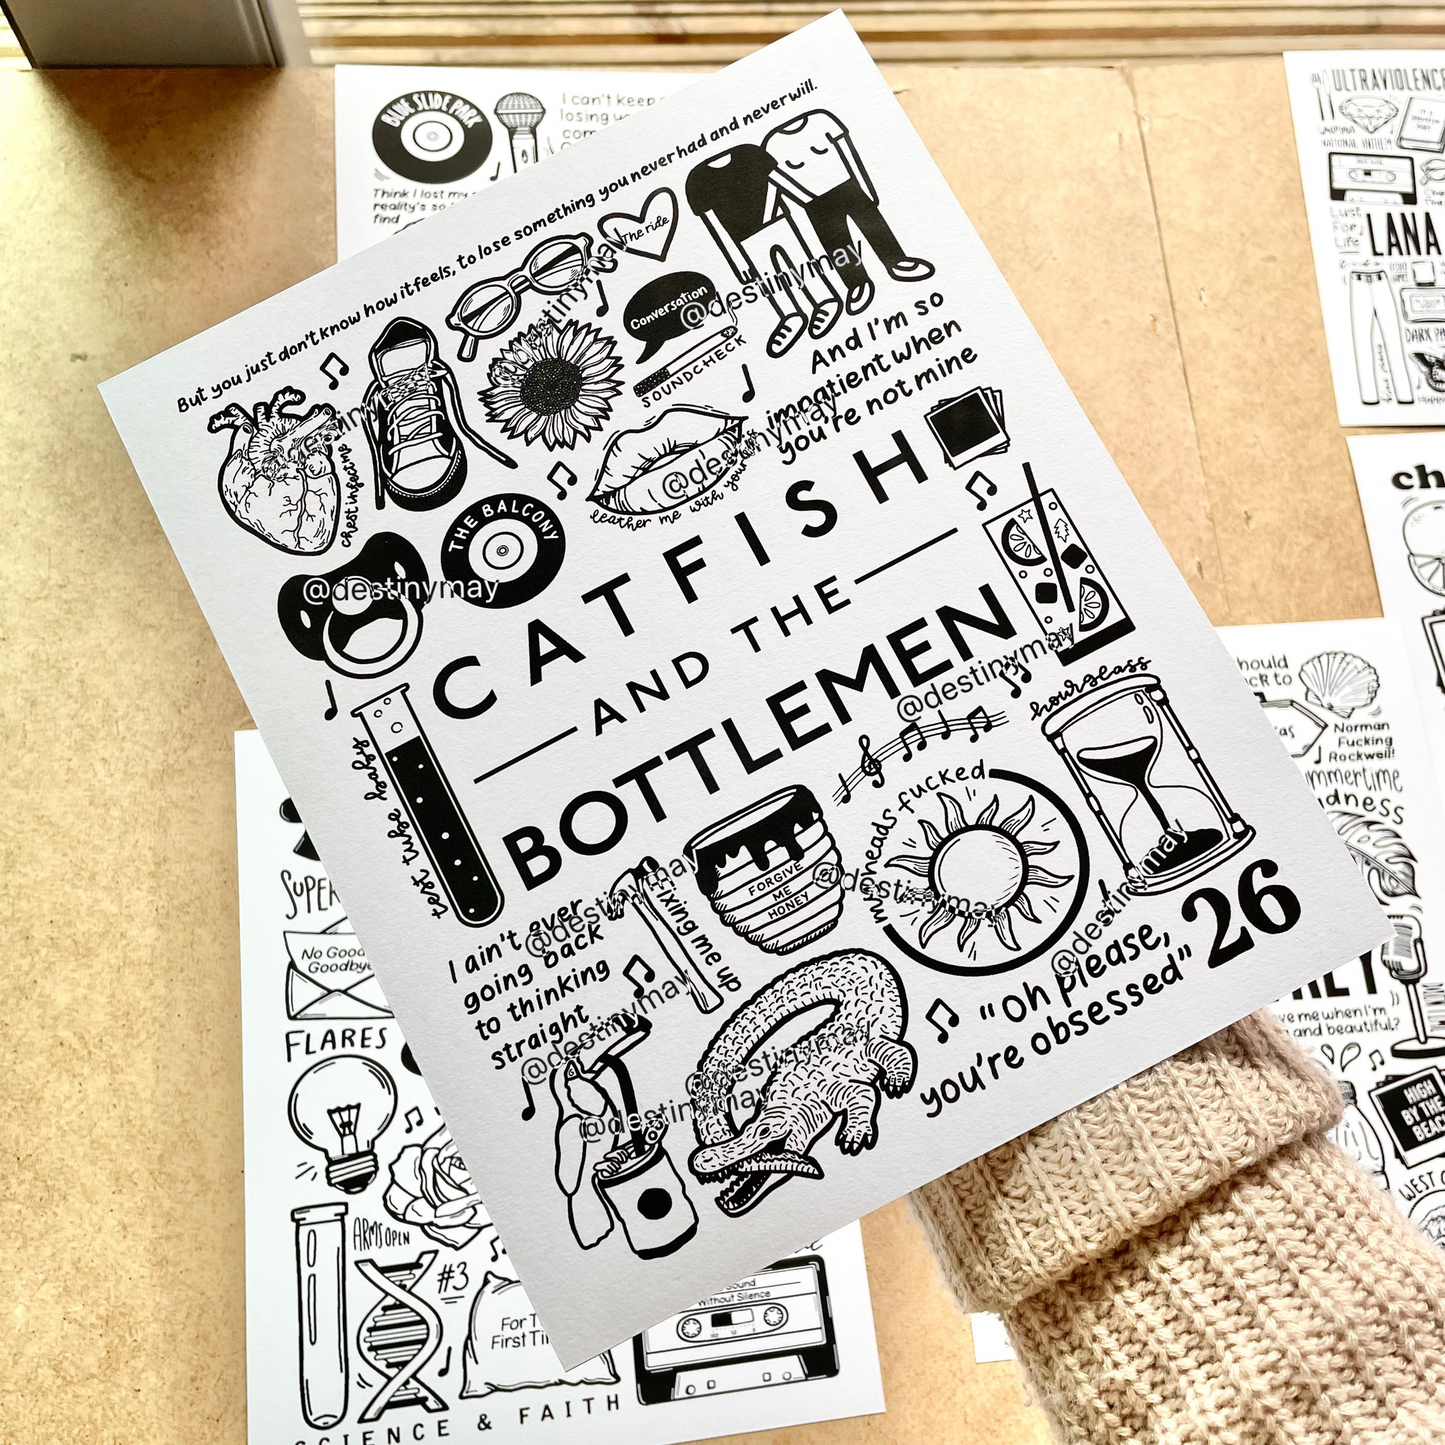 BLUE SLIDE PARK
I can't keep
losing
Think I lost my
reality's so
find
ULTRAVIOLENCE
NATIONAL ANTHEM
Lust
For
Life
LANA
DARK PA
But you just don't know how it feels, to lose something you never had and never will.
The ride
Conversation
SOUNDCHECK
And I'm so
impatient when
you're not mine
chest infect me
leather me with your
THE BALCONY
CATFISH
AND THE
BOTTLEMEN
test tube baby
hourglass
my heads fucked
FORGIVE
ME
HONEY
fixing me up
I ain't ever
going back
to thinking
straight
26
"Oh please,
you're obsessed"
@destinymay
@destinymay
@destinymay
@destinymay
@destinymay
@destinymay
@destinymay
@destinymay
@destinymay
ch
hould
Norman
Fucking
Rockwell!
mmertime
adness
me when I'm
and beautiful?
HIGH
BY THE
BEACH
WEST
SUPER
No Good
Goodbye
FLARES
ARMS OPEN
#3
For T
First Ti
Sound
Without Silence
SCIENCE & FAITH